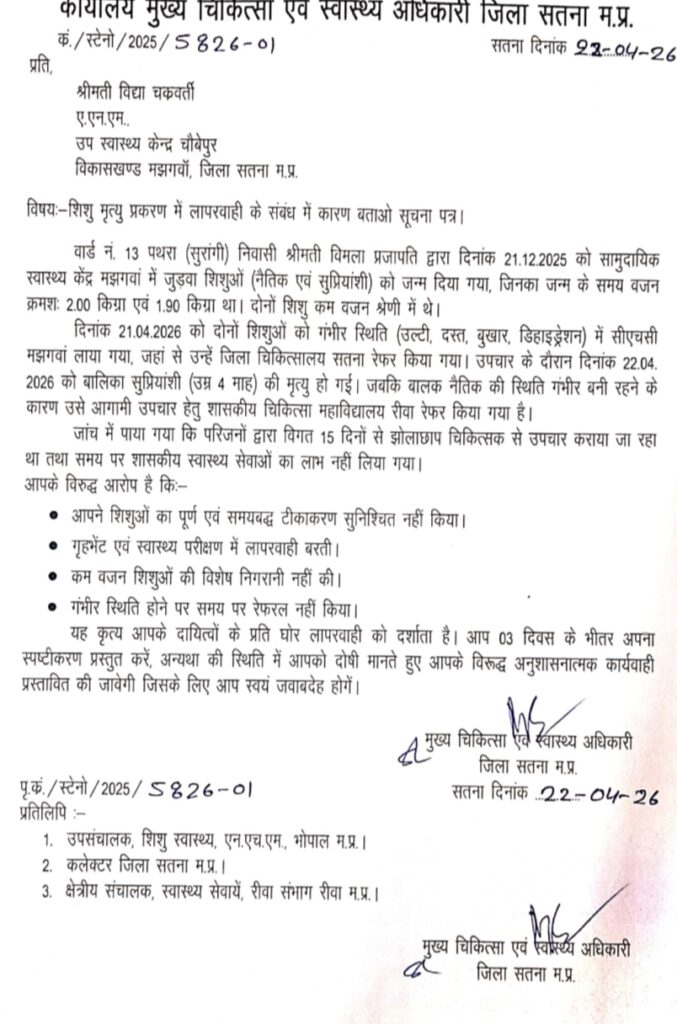 कार्यालय मुख्य चिकित्सा एवं स्वास्थ्य अधिकारी जिला सतना म.प्र.
कं./स्टेनो/2025/5826-01 सतना दिनांक 22-04-26
प्रति,
श्रीमती विद्या चकवर्ती
ए.एन.एम.,
उप स्वास्थ्य केन्द्र चौबेपुर
विकासखण्ड मझगवॉ, जिला सतना म.प्र.
विषयः–शिशु मृत्यु प्रकरण में लापरवाही के संबंध में कारण बताओ सूचना पत्र।
वार्ड नं. 13 पथरा (सुरांगी) निवासी श्रीमती विमला प्रजापति द्वारा दिनांक 21.12.2025 को सामुदायिक
स्वास्थ्य केंद्र मझगवां में जुड़वा शिशुओं (नैतिक एवं सुप्रियांशी) को जन्म दिया गया, जिनका जन्म के समय वजन
क्रमशः 2.00 किग्रा एवं 1.90 किग्रा था। दोनों शिशु कम वजन श्रेणी में थे।
दिनांक 21.04.2026 को दोनों शिशुओं को गंभीर स्थिति (उल्टी, दस्त, बुखार, डिहाइड्रेशन) में सीएचसी
मझगवां लाया गया, जहां से उन्हें जिला चिकित्सालय सतना रेफर किया गया। उपचार के दौरान दिनांक 22.04.
2026 को बालिका सुप्रियांशी (उम्र 4 माह) की मृत्यु हो गई। जबकि बालक नैतिक की स्थिति गंभीर बनी रहने के
कारण उसे आगामी उपचार हेतु शासकीय चिकित्सा महाविद्यालय रीवा रेफर किया गया है।
जांच में पाया गया कि परिजनों द्वारा विगत 15 दिनों से झोलाछाप चिकित्सक से उपचार कराया जा रहा
था तथा समय पर शासकीय स्वास्थ्य सेवाओं का लाभ नहीं लिया गया।
आपके विरुद्ध आरोप है किः–
• आपने शिशुओं का पूर्ण एवं समयबद्ध टीकाकरण सुनिश्चित नहीं किया।
• गृहभेंट एवं स्वास्थ्य परीक्षण में लापरवाही बरती।
• कम वजन शिशुओं की विशेष निगरानी नहीं की।
• गंभीर स्थिति होने पर समय पर रेफरल नहीं किया।
यह कृत्य आपके दायित्वों के प्रति घोर लापरवाही को दर्शाता है। आप 03 दिवस के भीतर अपना
स्पष्टीकरण प्रस्तुत करें, अन्यथा की स्थिति में आपको दोषी मानते हुए आपके विरूद्ध अनुशासनात्मक कार्यवाही
प्रस्तावित की जावेगी जिसके लिए आप स्वयं जवाबदेह होगें।
मुख्य चिकित्सा एवं स्वास्थ्य अधिकारी
जिला सतना म.प्र.
पृ.कं./स्टेनो/2025/5826-01 सतना दिनांक 22-04-26
प्रतिलिपि :–
1. उपसंचालक, शिशु स्वास्थ्य, एन.एच.एम., भोपाल म.प्र.।
2. कलेक्टर जिला सतना म.प्र.।
3. क्षेत्रीय संचालक, स्वास्थ्य सेवायें, रीवा संभाग रीवा म.प्र.।
मुख्य चिकित्सा एवं स्वास्थ्य अधिकारी
जिला सतना म.प्र.